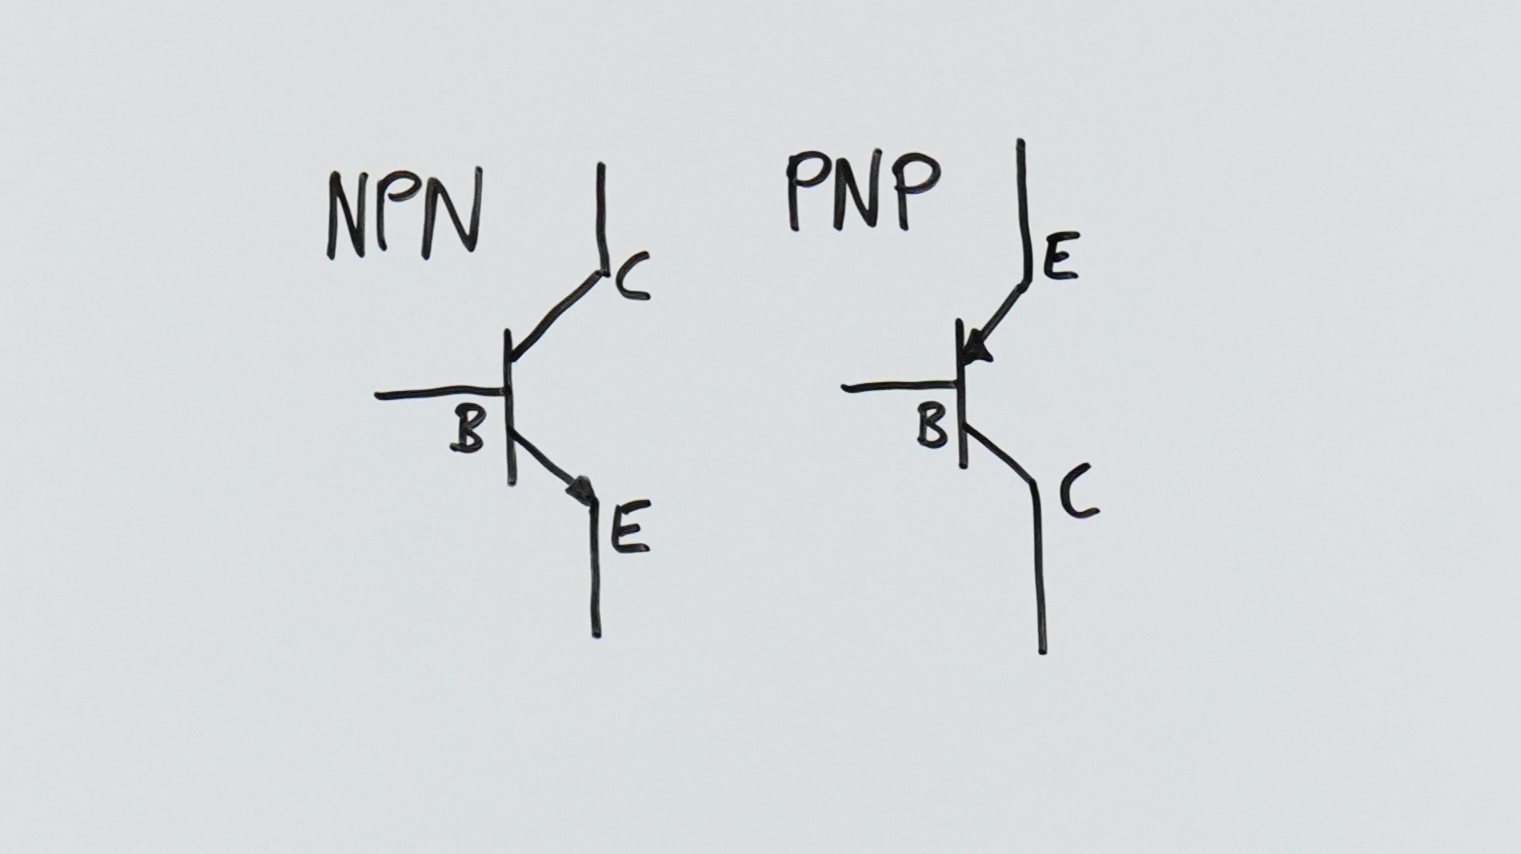 NPN
C
B
E
PNP
E
B
C